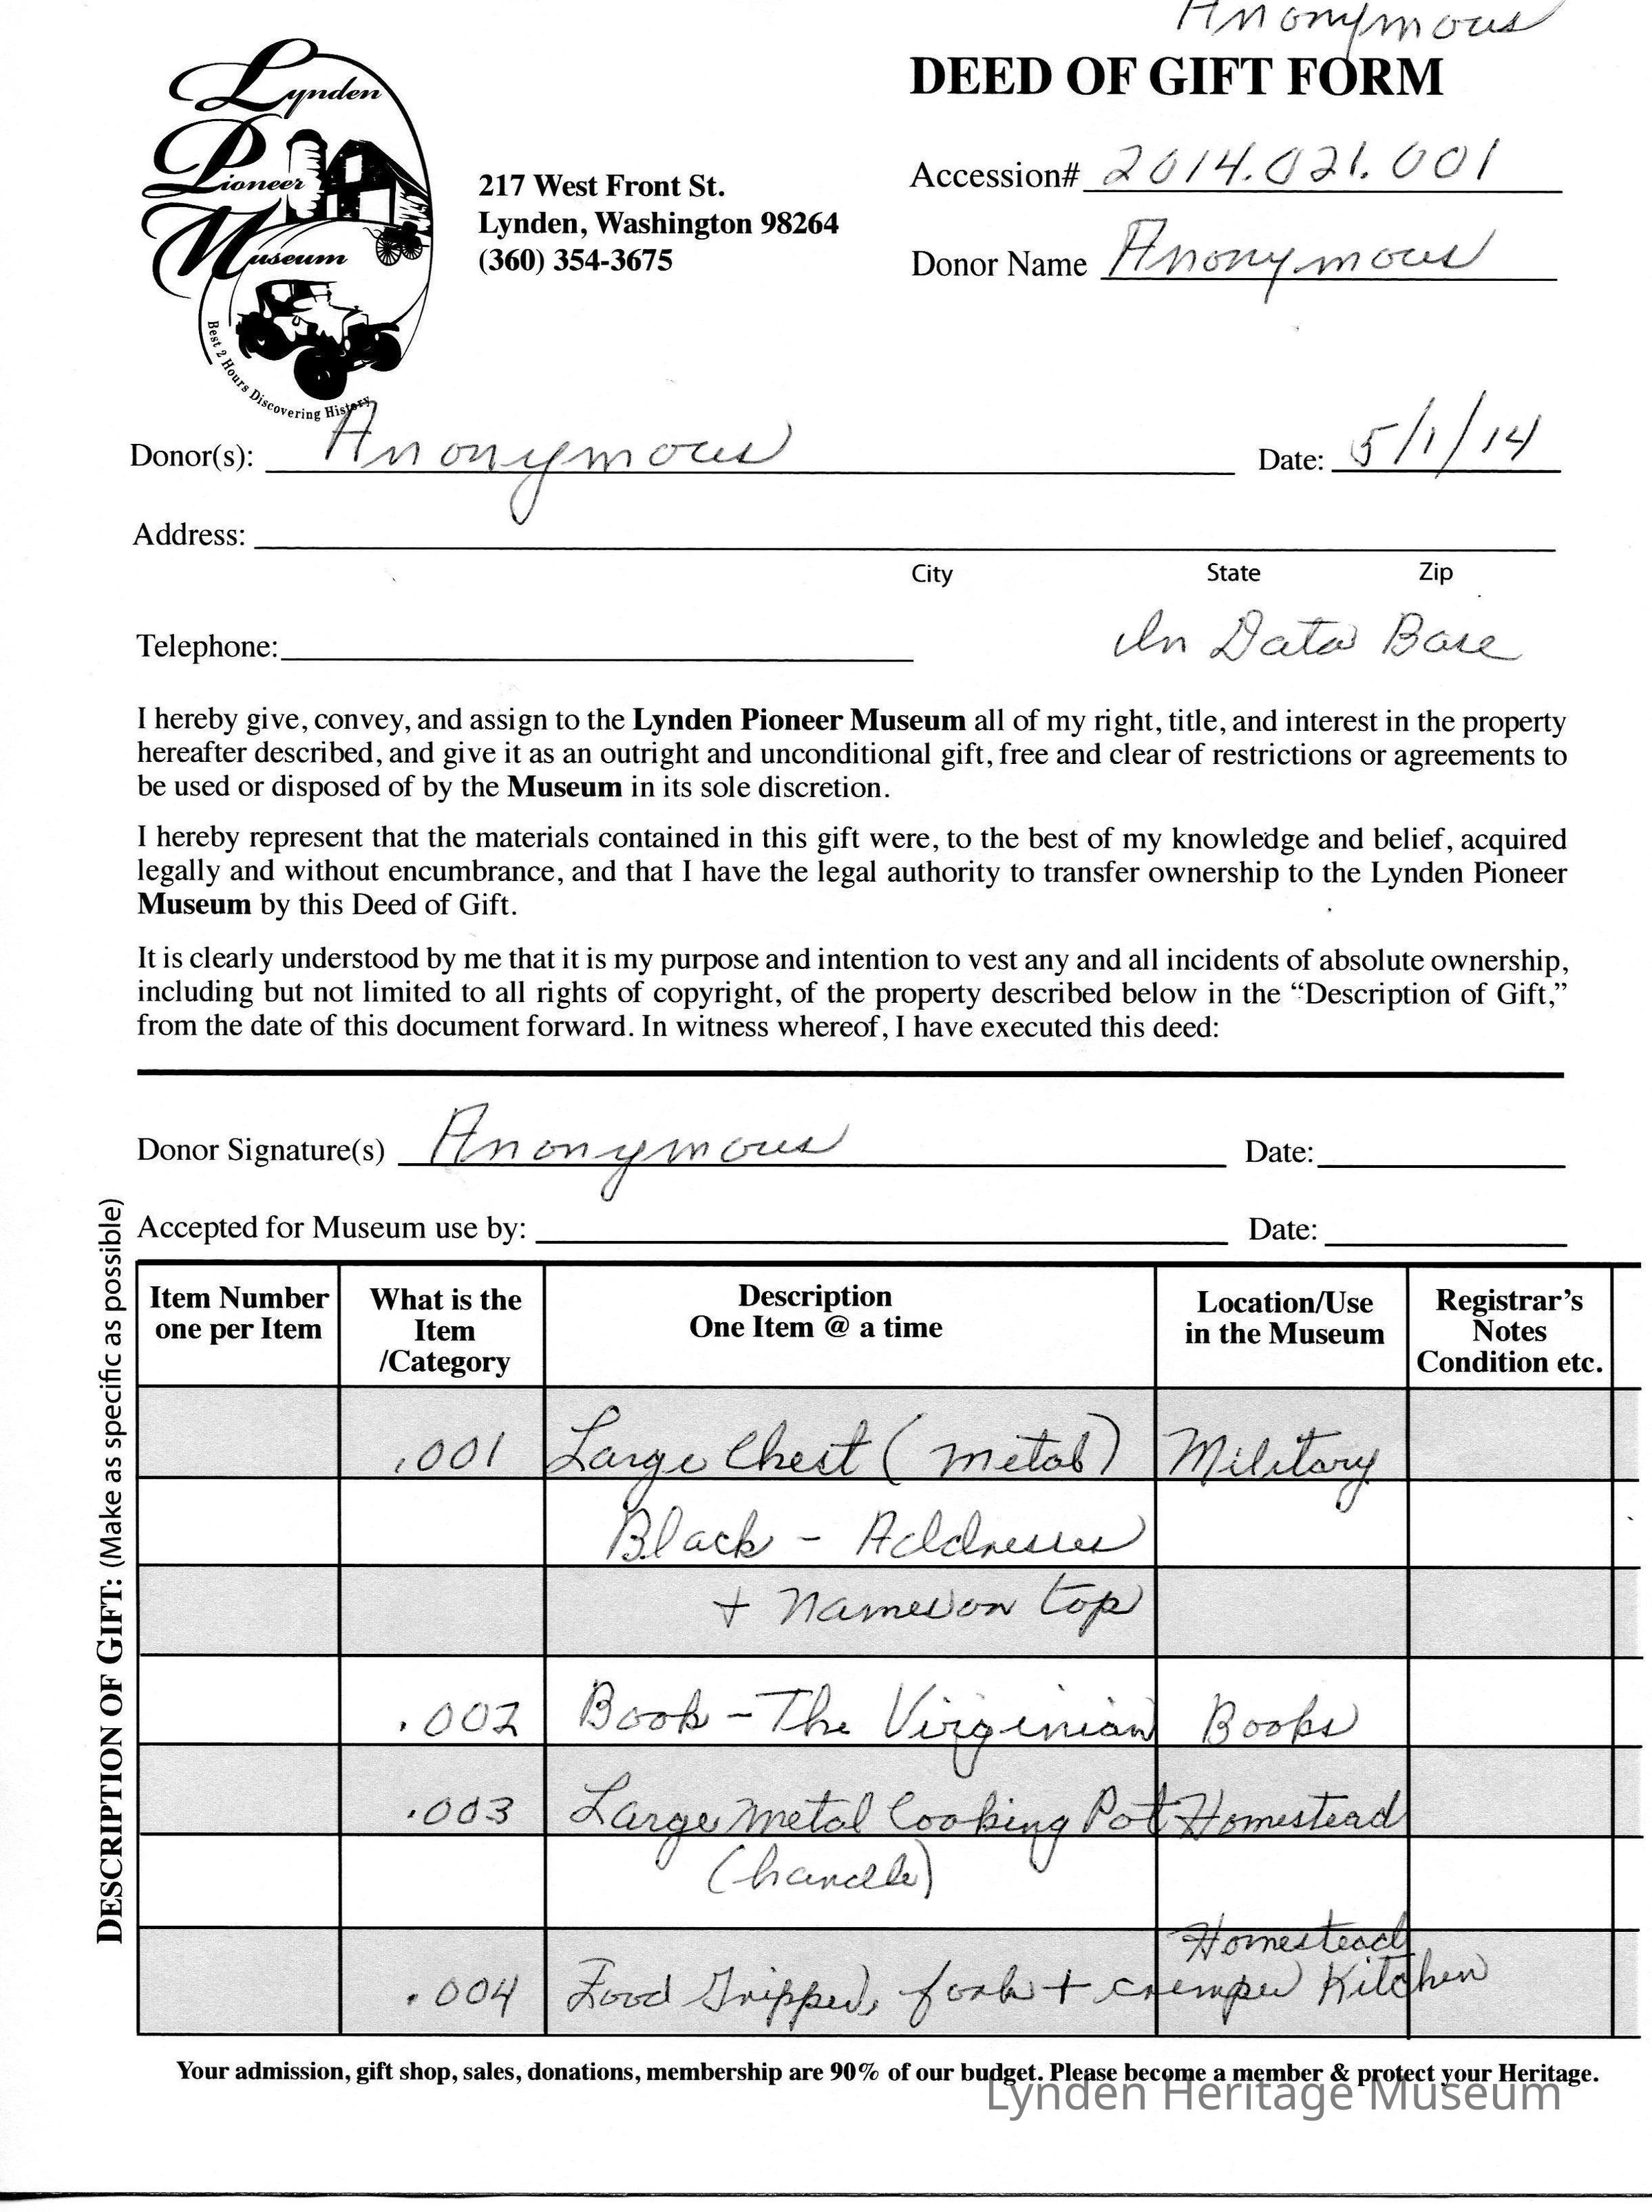 Anonymous
DEED OF GIFT FORM
Lynden
Pioneer
Museum
Best 2 Hours Discovering History
217 West Front St.
Lynden, Washington 98264
(360) 354-3675
Accession# 2014.021.001
Donor Name Anonymous
Donor(s): Anonymous Date: 5/1/14
Address:
City State Zip
Telephone: In Data Base
I hereby give, convey, and assign to the Lynden Pioneer Museum all of my right, title, and interest in the property
hereafter described, and give it as an outright and unconditional gift, free and clear of restrictions or agreements to
be used or disposed of by the Museum in its sole discretion.
I hereby represent that the materials contained in this gift were, to the best of my knowledge and belief, acquired
legally and without encumbrance, and that I have the legal authority to transfer ownership to the Lynden Pioneer
Museum by this Deed of Gift.
It is clearly understood by me that it is my purpose and intention to vest any and all incidents of absolute ownership,
including but not limited to all rights of copyright, of the property described below in the “Description of Gift,”
from the date of this document forward. In witness whereof, I have executed this deed:
Donor Signature(s) Anonymous Date:
Accepted for Museum use by: Date:
DESCRIPTION OF GIFT: (Make as specific as possible)
Item Number one per Item What is the Item /Category Description One Item @ a time Location/Use in the Museum Registrar's Notes Condition etc.
.001 Large Chest (metal) Military
Black - Addresses
+ names on top
.002 Book - The Virginian Books
.003 Large Metal Cooking Pot Homestead
(handle)
Homestead
.004 Food Gripper, fork + crimper Kitchen
Your admission, gift shop, sales, donations, membership are 90% of our budget. Please become a member & protect your Heritage.
Lynden Heritage Museum